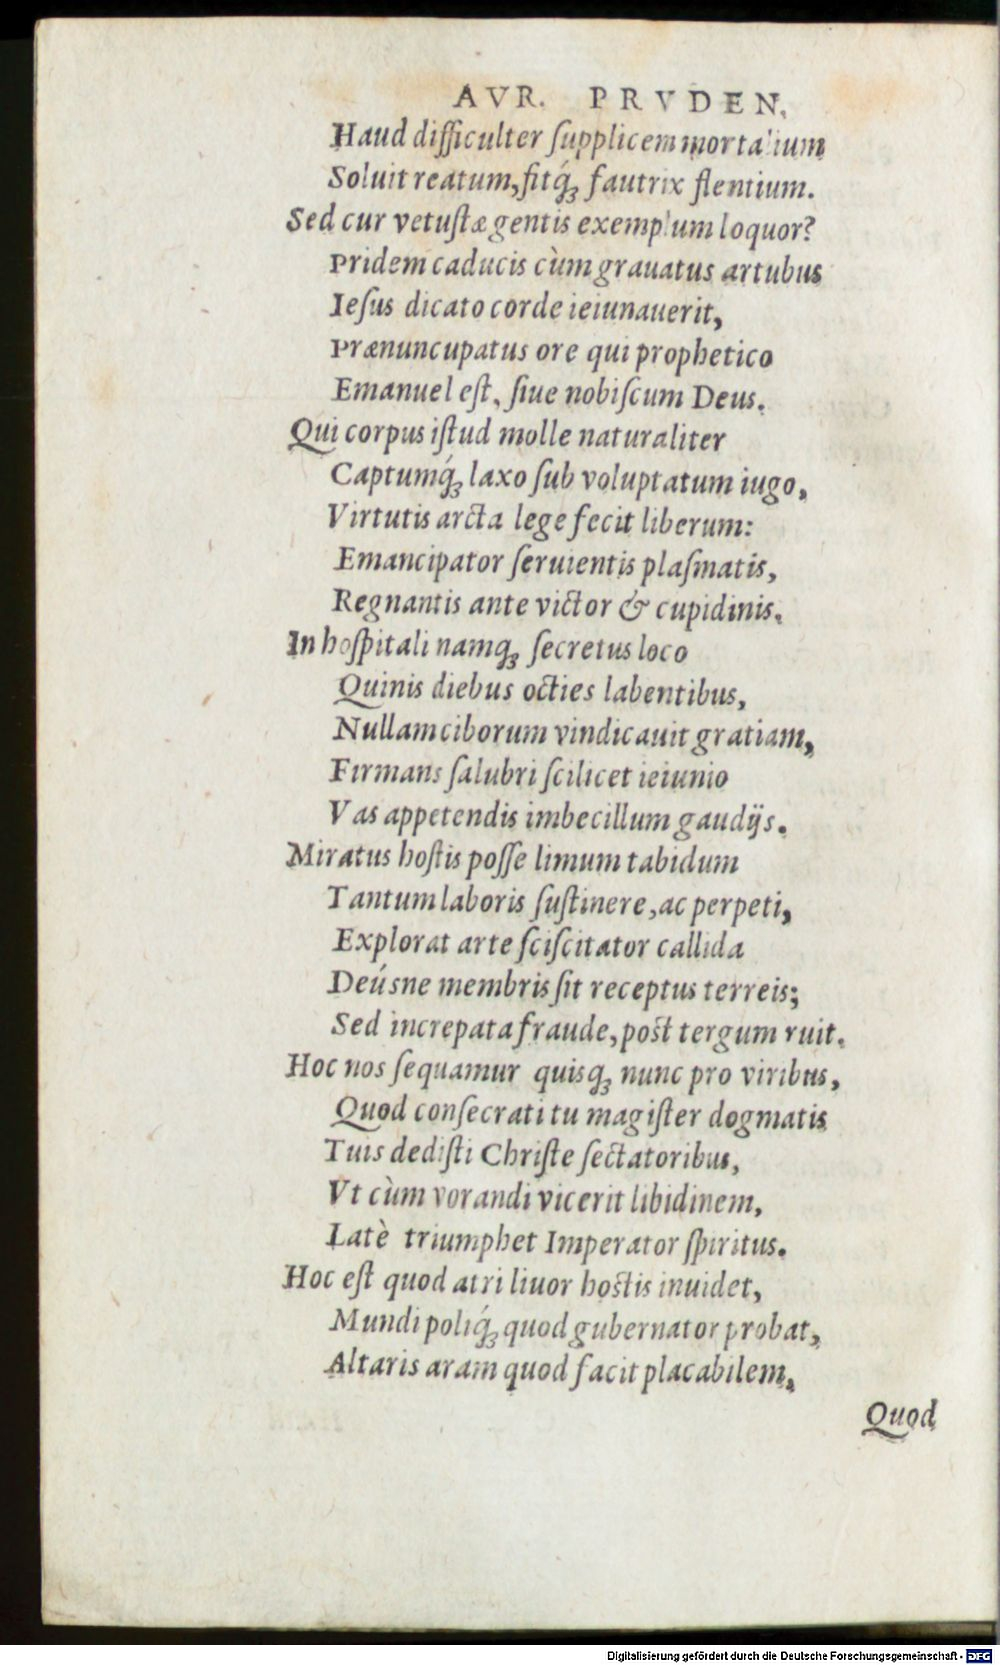 AVR. PRVDEN.
Haud difficulter ſupplicem mortalium
Soluit reatum, fitq́ꝫ fautrix flentium.
Sed cur vetuſtæ gentis exemplum loquor?
Pridem caducis cùm grauatus artubus
Ieſus dicato corde ieiunauerit,
Prænuncupatus ore qui prophetico
Emanuel eſt, ſiue nobiſcum Deus.
Qui corpus iſtud molle naturaliter
Captumq́ꝫ laxo ſub voluptatum iugo,
Virtutis arcta lege fecit liberum:
Emancipator ſeruientis plaſmatis,
Regnantis ante victor & cupidinis.
In hoſpitali namqꝫ ſecretus loco
Quinis diebus octies labentibus,
Nullam ciborum vindicauit gratiam,
Firmans ſalubri ſcilicet ieiunio
Vas appetendis imbecillum gaudijs.
Miratus hoſtis poſſe limum tabidum
Tantum laboris ſuſtinere, ac perpeti,
Explorat arte ſciſcitator callida
Deúsne membris ſit receptus terreis;
Sed increpata fraude, post tergum ruit.
Hoc nos ſequamur quisqꝫ nunc pro viribus,
Quod conſecrati tu magiſter dogmatis
Tuis dediſti Chriſte ſectatoribus,
Vt cùm vorandi vicerit libidinem,
Latè triumphet Imperator ſpiritus.
Hoc eſt quod atri liuor hostis inuidet,
Mundi poliq́ꝫ quod gubernator probat,
Altaris aram quod facit placabilem,
Quod
Digitalisierung gefördert durch die Deutsche Forschungsgemeinschaft - DFG